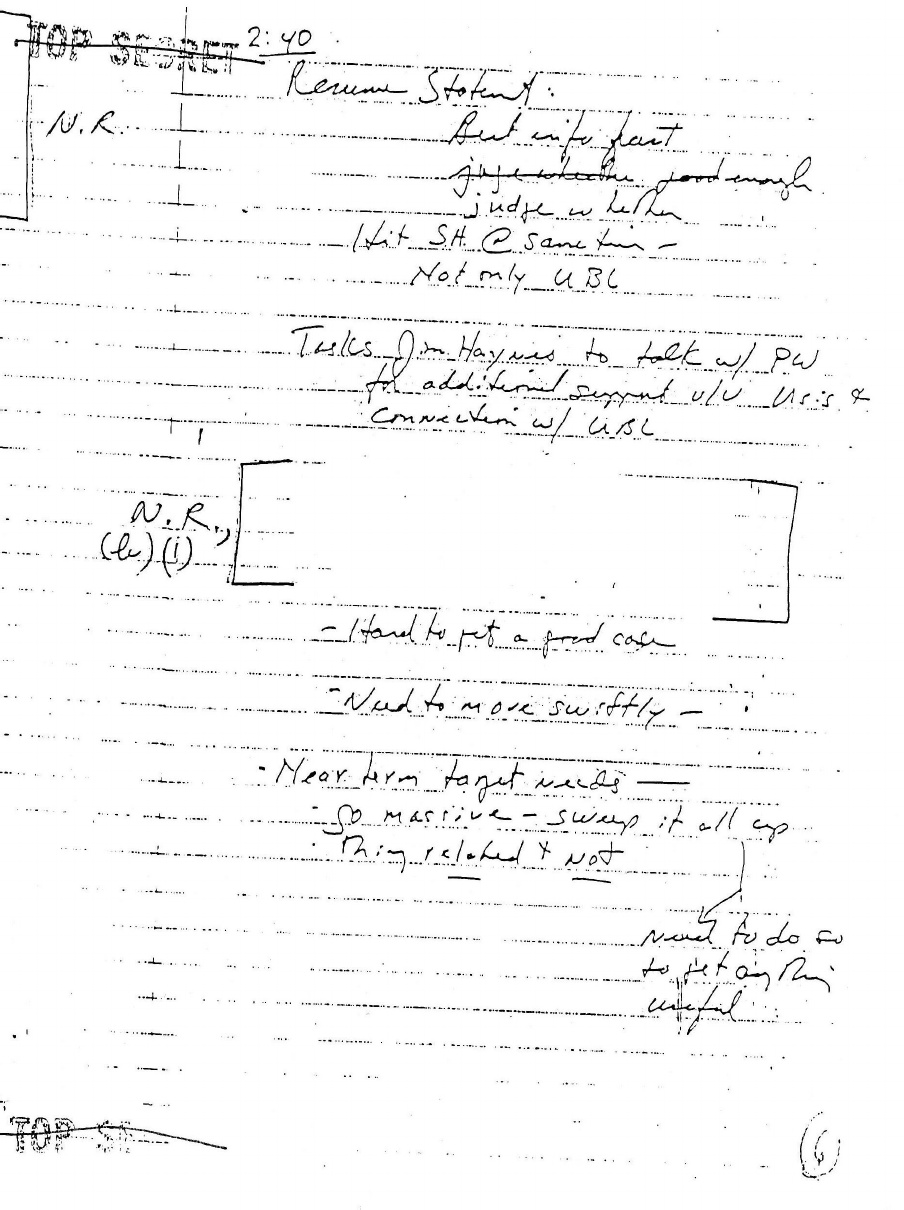 TOP SECRET
2:40
N.R.
Resume Statemt:
Best info fast
judge whether good enough
judge whether
Hit S.H. @ same time -
Not only UBL
Tasks Jim Haynes to talk w/ PW
for additional support v/v Usis &
connection w/ UBL
N.R.,
(b)(1)
- Hard to get a good case
- Need to move swiftly -
- Near term target needs —
- go massive - sweep it all up
- Thing related & not
need to do so
to get anything
useful
TOP SE
6